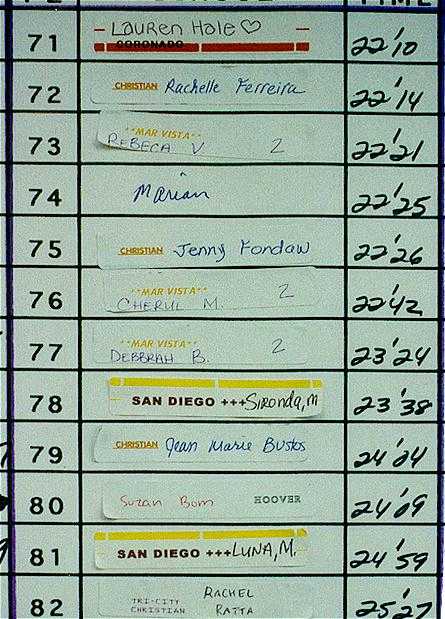 71 Lauren Hale ♡ 22'10
CORONADO
72 CHRISTIAN Rachelle Ferreira 22'14
73 "MAR VISTA" 22'21
REBECA V 2
74 Marian 22'25
75 CHRISTIAN Jenny Fondaw 22'26
76 "MAR VISTA" 2 22'42
CHERYL M.
77 "MAR VISTA" 2 23'24
DEBBRAH B.
78 SAN DIEGO +++ Sironda, M 23'38
79 CHRISTIAN Jean Marie Bustos 24'04
80 Suzan Bom HOOVER 24'09
81 SAN DIEGO +++ LUNA, M. 24'59
82 TRI-CITY RACHEL 25'27
CHRISTIAN RATTA